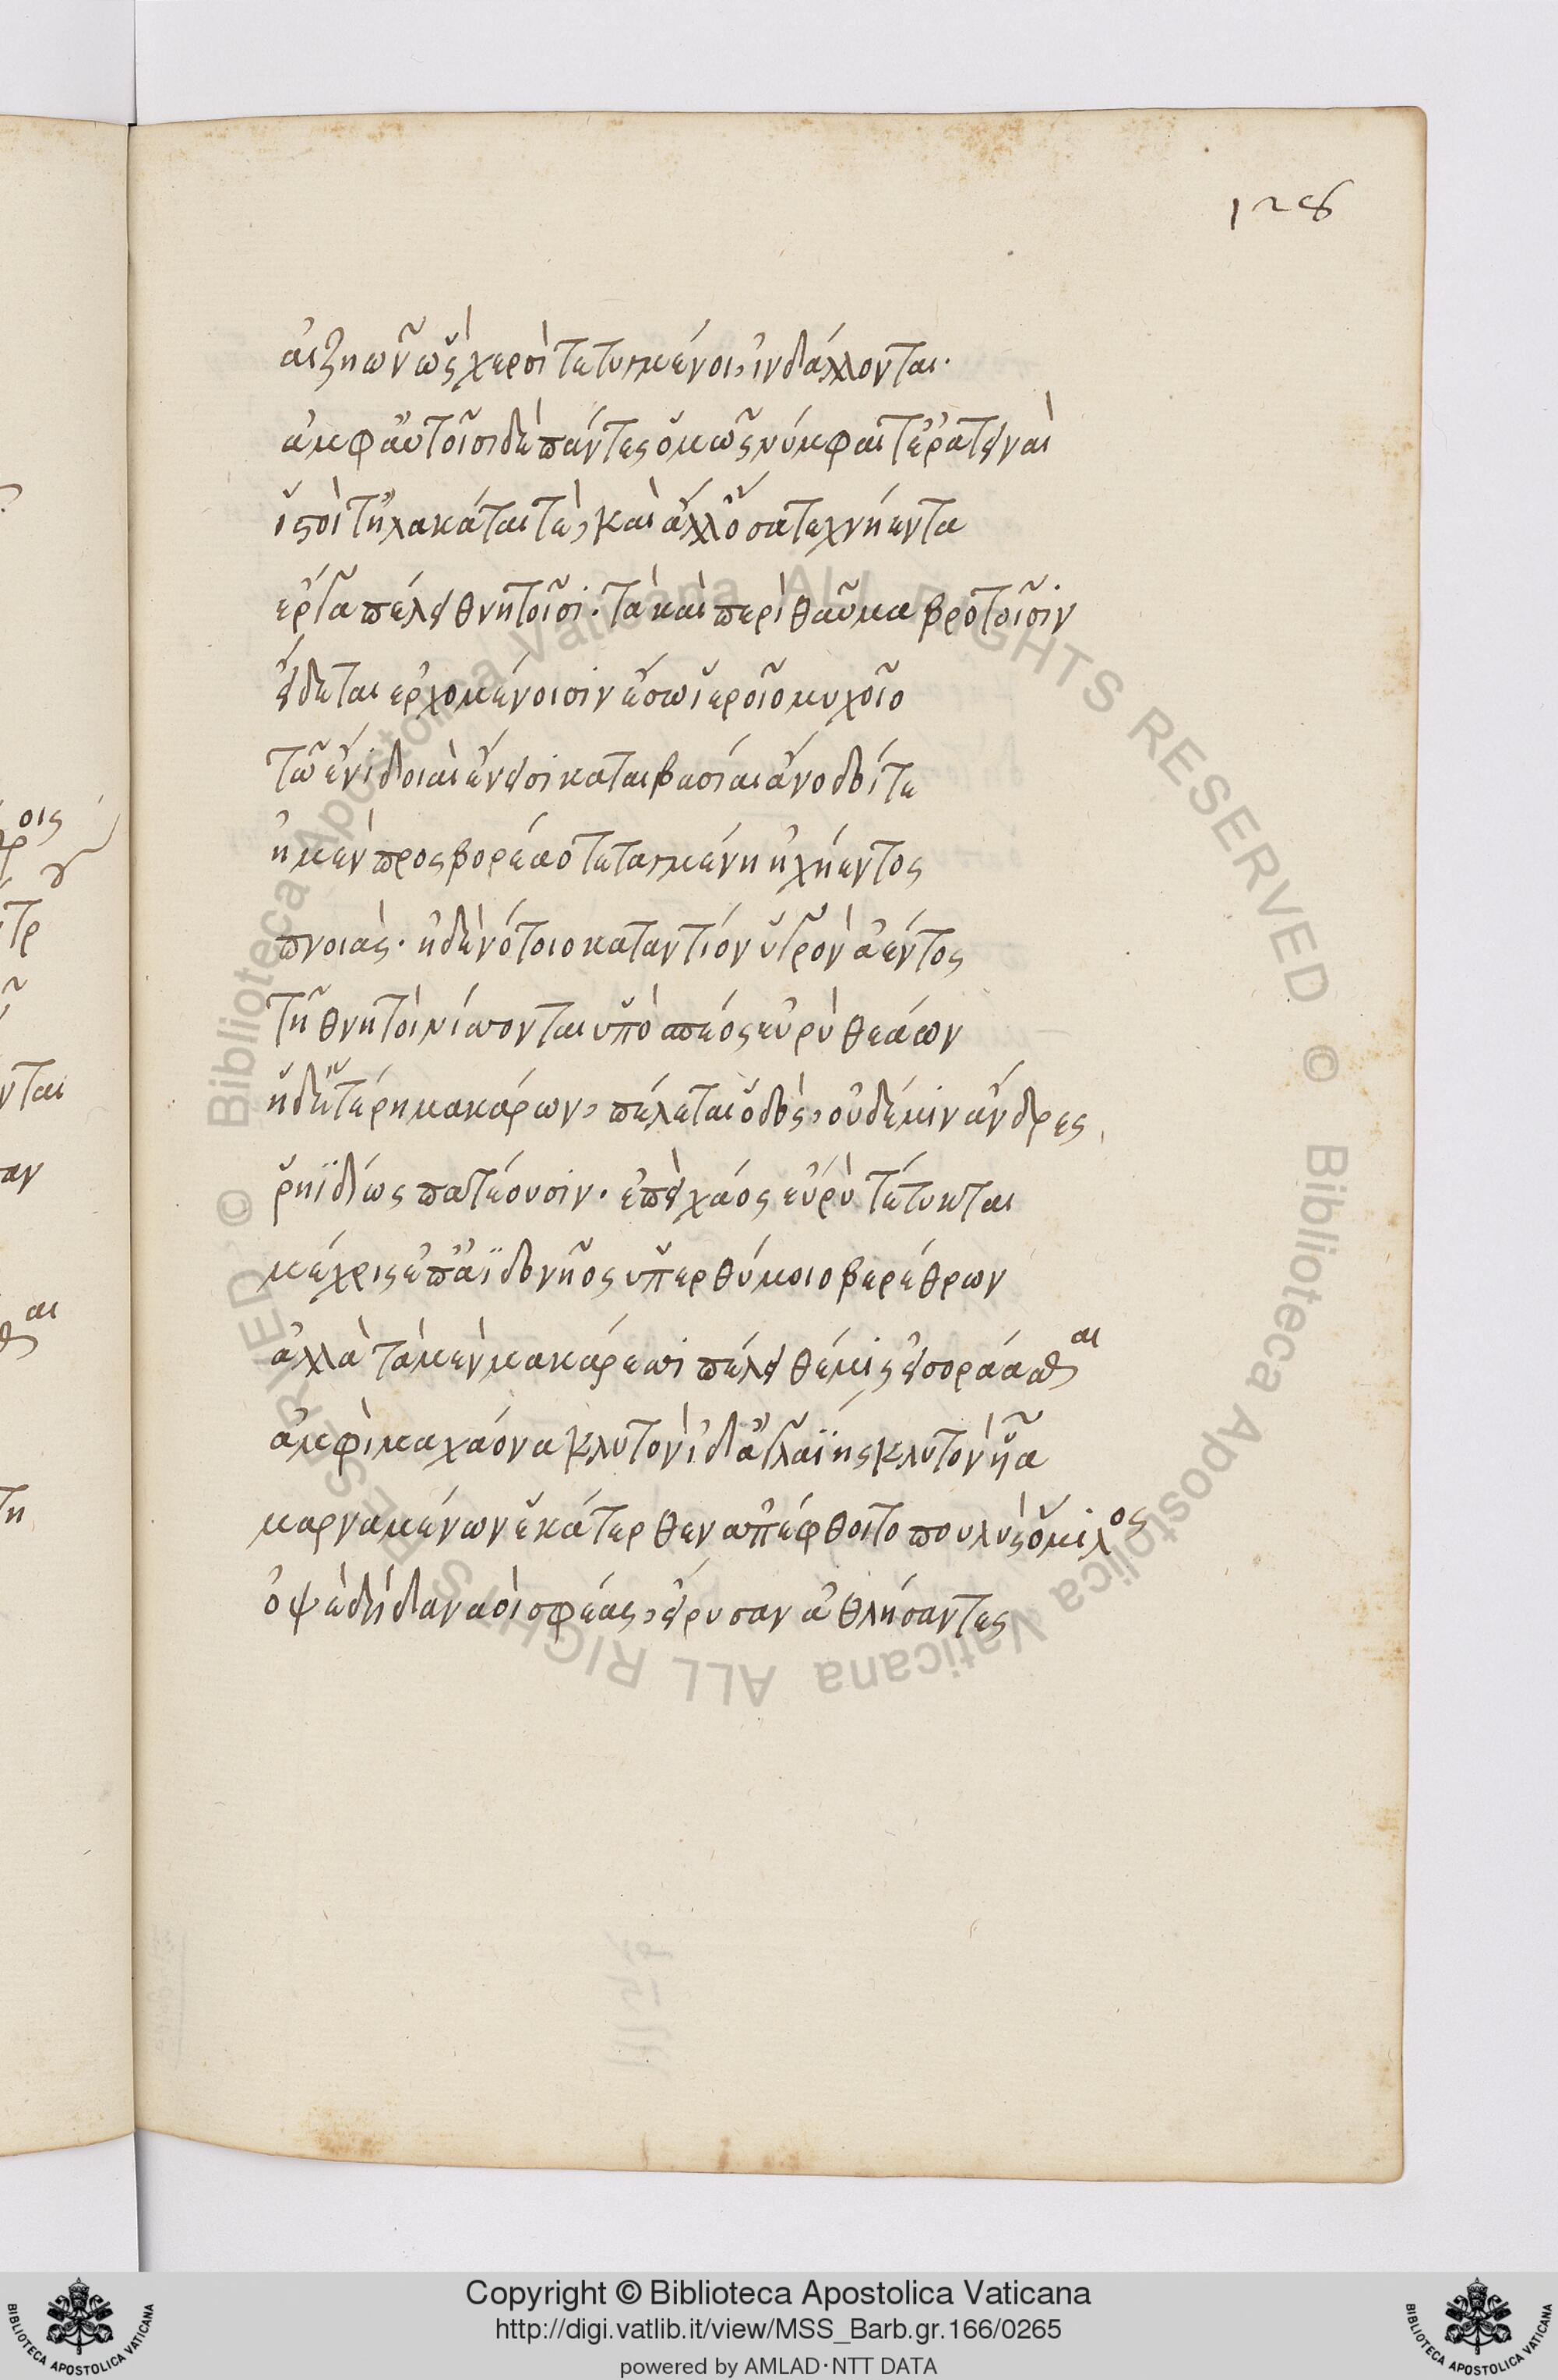 128
αἰζηῶν ὣς χερσὶ τετυγμένοι, ἰνδάλλονται.
ἀμφ' αὐτοῖσι δὲ πάντες ὁμῶς νύμφαι τ' ἐρατειναὶ
ἱστοί τ' ἠλακάται τὲ, καὶ ἄλλ' ὅσα τεχνήεντα
ἔργα πέλει θνητοῖσι. τὰ καὶ περὶ θαῦμα βροτοῖσιν
εἴδεται ἐρχομένοισιν ἔσω ἱεροῖο μυχοῖο
τῷ ἔνι δοιαὶ ἔνεισι καταιβασίαι ἄνοδοί τε
ἡ μὲν προς βορέαο τεταγμένη ἠχήεντος
πνοιὰς. ἡ δὲ νότοιο καταντίον ὑγρὸν ἀέντος
τῇ θνητοὶ νίσσονται ὑπὸ σπέος εὐρὺ θεάων
ἡ δ' ἑτέρη μακάρων, πέλεται ὁδὸς, οὐδέ μιν ἄνδρες
ῥηϊδίως πατέουσιν. ἐπεὶ χάος εὐρὺ τέτυκται
μέχρις ἐπ' ἀϊδονῆος ὑπερθύμοιο βερέθρων
ἀλλὰ τὰ μὲν μακάρεσσι πέλει θέμις εἰσοράασθαι
ἀμφὶ μαχάονα κλυτὸν ἰδ' ἀγλαΐης κλυτὸν ἧα
μαρναμένων ἑκάτερθεν ἀπέφθιτο πουλὺς ὅμιλος
ὀψὲ δὴ δαναοὶ σφέας, εἴρυσαν ἀθλήσαντες
Copyright © Biblioteca Apostolica Vaticana
http://digi.vatlib.it/view/MSS_Barb.gr.166/0265
powered by AMLAD·NTT DATA
BIBLIOTECA APOSTOLICA VATICANA
BIBLIOTECA APOSTOLICA VATICANA
© Biblioteca Apostolica Vaticana ALL RIGHTS RESERVED © Biblioteca Apostolica Vaticana ALL RIGHTS RESERVED